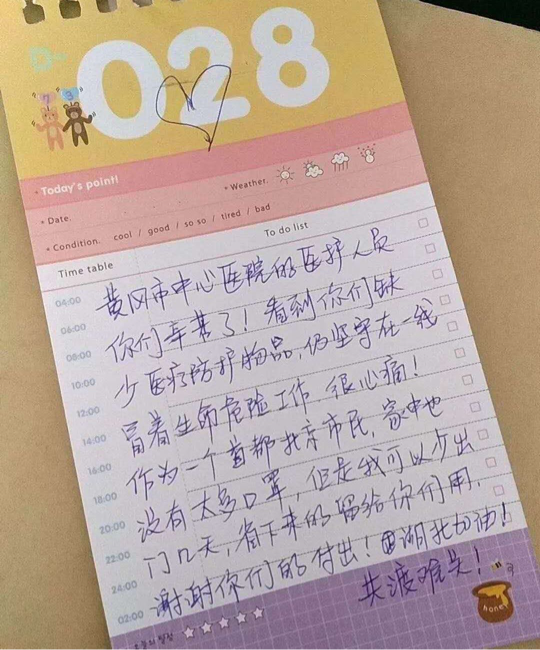 028
Today's point!
Date.
Weather.
Condition. cool / good / so so / tired / bad
Time table
To do list
04:00
06:00
08:00
10:00
12:00
14:00
16:00
18:00
20:00
22:00
24:00
02:00
黄冈市中心医院的医护人员
你们辛苦了！看到你们缺
少医疗防护物品,仍坚守在一线
冒着生命危险工作 很心痛！
作为一个首都北京市民,家中也
没有太多口罩,但是我可以少出
门几天,省下来的留给你们用.
谢谢你们的付出！湖北加油！
共渡难关！
오늘의 별점
honey